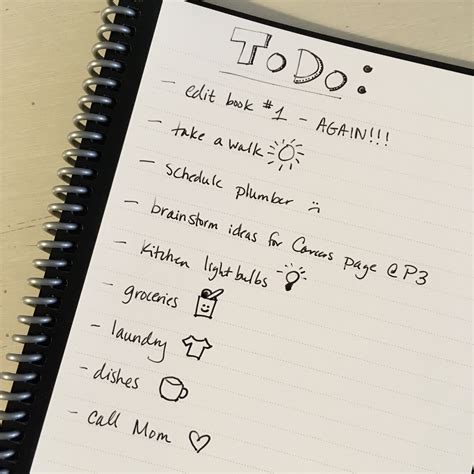 ToDo:
- edit book #1 - AGAIN!!!
- take a walk
- schedule plumber :(
- brainstorm ideas for Careers page @ P3
- kitchen lightbulbs
- groceries
- laundry
- dishes
- call Mom ♡